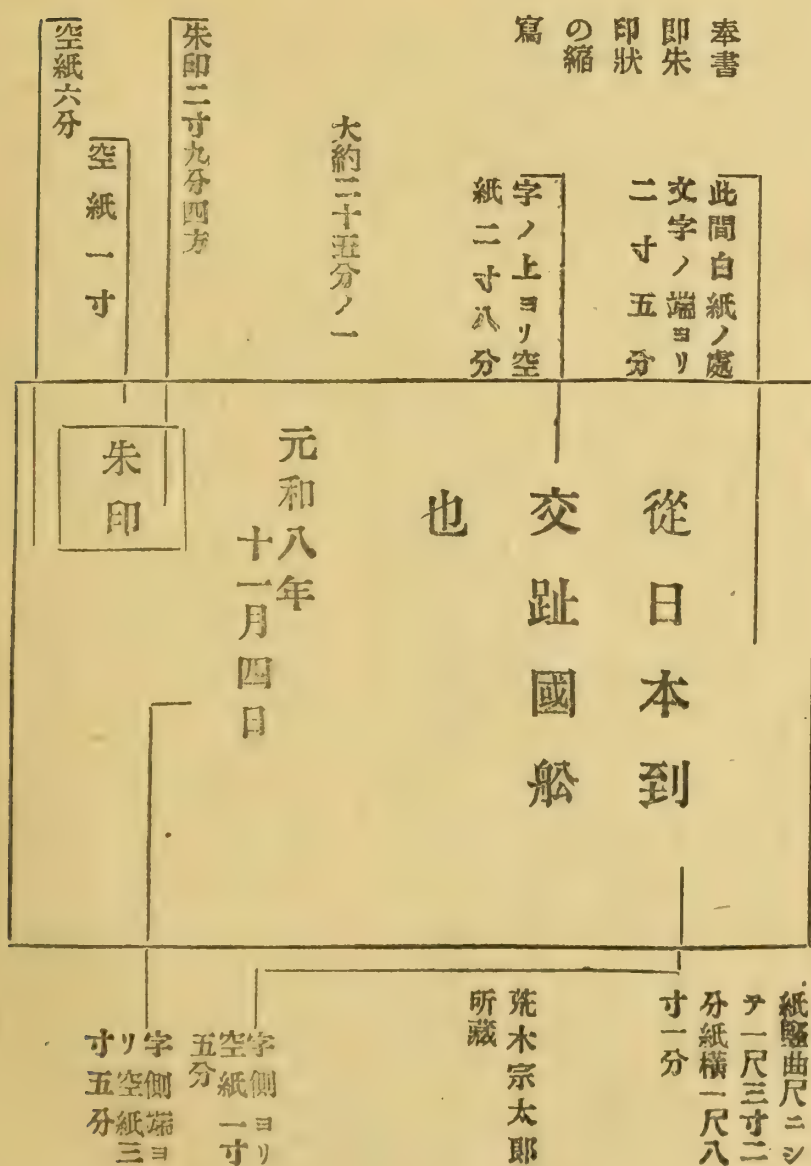 奉書
即朱
印狀
の縮
寫
此間白紙ノ處
文字ノ端ヨリ
二寸五分
字ノ上ヨリ空
紙二寸八分
大約二十五分ノ一
朱印二寸九分四方
空紙一寸
空紙六分
從日本到
交趾國舩
也
元和八年
十一月四日
朱印
紙竪曲尺ニシ
テ一尺三寸二
分紙橫一尺八
寸一分
荒木宗太郎
所藏
字側ヨリ
空紙一寸
五分
字側端ヨ
リ空紙三
寸五分